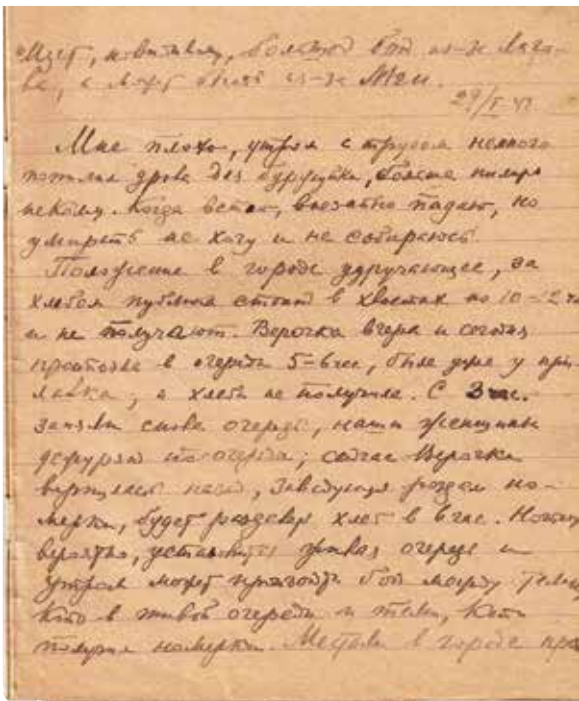 Идет, по-видимому, большой бой из-за Люба-
ни, а может быть из-за Мги.
29/I 42
Мне плохо, утром с трудом немного
попилил дрова для буржуйки, больше пилить
некому. Когда встаю, внезапно падаю, но
умирать не хочу и не собираюсь.
Положение в городе удручающее, за
хлебом публика стоит в хвостах по 10-12 ч
и не получают. Верочка вчера и сегодня
простояла в очереди 5-6 час, была уже у при-
лавка, а хлеба не получила. С 3 час.
заняли снова очередь, наши женщины
дежурят по очереди; сейчас Верочка
вернулась назад, заведующая раздала но-
мерки, будет раздавать хлеб в 6 час. Ночью,
вероятно, установится живая очередь и
утром может произойти бой между теми,
кто в живой очереди и теми, кто
получил номерки. Местами в городе про